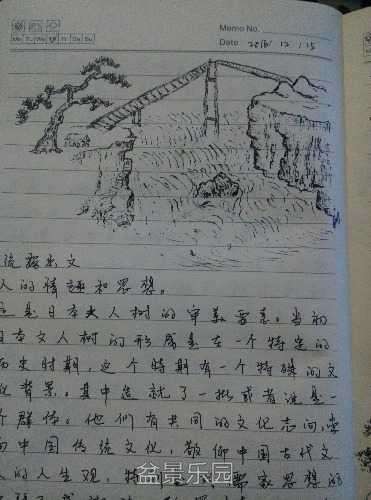 Memo No.
Mo Tu We Th Fr Sa Su
Date 2016 / 12 / 15
流 出 文
人的情趣和思想。
是日本文人树的审美要素。当初
日本文人树的形成是在一个特定的
历史时期，这个时期有一个特殊的文
化背景。其中造就了一批或者说是一
个群体。他们有共同的文化志向，
中国传统文化，敬仰中国古代文
人的人生观， 家思想的
盆景乐园